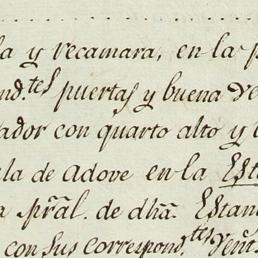 la y recamara, en la p
nd.tes puertas y buena ve
ador con quarto alto y
la de Adove en la Esta
a prãl. de dhã. Estan
con sus correspond.tes